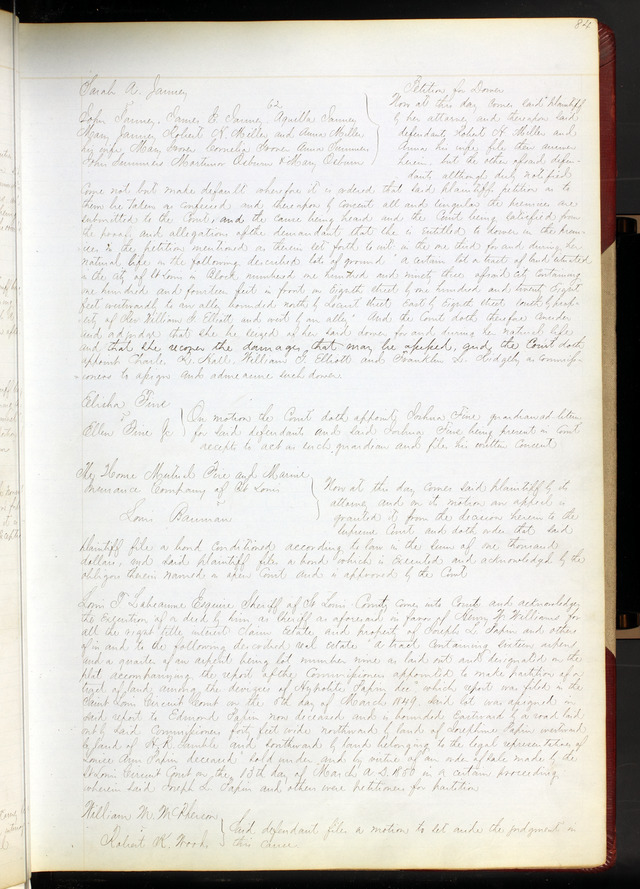 84
Sarah A. Janney
vs 62
John Janney, James E Janney Aquella Janney
Mary Janney Robert H. Miller and Anna Miller
his wife Mary Janney Cornelia Janney Anna Summers
John Summers Mortimer Osburn & Mary Osburn
Petition for Dower
Now at this day comes said plaintiff
by her attorney and thereupon said
defendants Robert H. Miller and
Anna his wife, file their answer
herein. but the other aforesaid defen-
dants although duly notified
Come not but make default wherefore it is ordered that said plaintiffs petition as to
them be taken as confessed and thereupon by consent all and singular the premises are
submitted to the Court, and the cause being heard and the Court being satisfied from
the proofs and allegations of the demandant, that she is entitled to dower in the prem-
ises in the petition mentioned as therein set forth to wit in the one third for and during her
natural life in the following described lot of ground "a certain lot or tract of land situated
in the city of St Louis in Block numbered one hundred and ninety three of said city containing
one hundred and fourteen feet in front on Eighth street by one hundred and twenty eight
feet westwardly to an alley bounded north by Locust street East by Eighth street South by prop-
erty of Rev William G. Elliott and west by an alley" And the Court doth therefore consider
and adjudge that she be seized of her said dower for and during her natural life
and that she recover the damages that may be assessed, and the Court doth
appoint Charles D. Kall. William G. Elliotte and Franklin L. Ridgely as commiss-
ioners to assign and admeasure such dower
Elisha Fine
vs
Ellen Fine Jr
On motion the Court doth appoint Joshua Fine guardian ad litem
for said defendant and said Joshua Fine being present in Court
accepts to act as such guardian and files his written consent
The Home Mutual Fire and Marine
Insurance Company of St Louis
vs
Louis Bauman
Now at this day comes said plaintiff by its
attorney and on its motion an appeal is
granted it from the decision herein to the
Supreme Court and doth order that said
plaintiff file a bond conditioned according to law in the sum of one thousand
dollars, and said plaintiff files a bond which is executed and acknowledged by the
obligors therein named in open Court and is approved by the Court
Louis T. Labeaume Esquire Sheriff of St Louis County comes into Court and acknowledges
the execution of a deed by him, as Sheriff as aforesaid in favor of Henry W. Williams for
all the right title interest claim estate and property of Joseph L. Papin and others
of in and to the following described real estate "a tract containing sixteen arpens
and a quarter of an arpent being lot number nine as laid out and designated on the
plat accompanying the report of the Commissioners appointed to make partition of a
tract of land among the devisees of Hypolite Papin dec" which report was filed in the
Saint Louis Circuit Court on the 8th day of March 1849. said lot was assigned in
said report to Edmond Papin now deceased and is bounded Eastward by a road laid
out by said Commissioners forty feet wide northward by lands of Josephine Papin westward
by land of H. R. Gamble and southward by land belonging to the legal representatives of
Louise Ayer Papin deceased" sold under and by virtue of an order of sale made by the
St Louis Circuit Court on the 13th day of March A D. 1850 in a certain proceeding
wherein said Joseph L. Papin and others were petitioners for partition
William M. McPherson
vs
Robert K. Woods
Said defendant files a motion to set aside the judgment in
this cause.